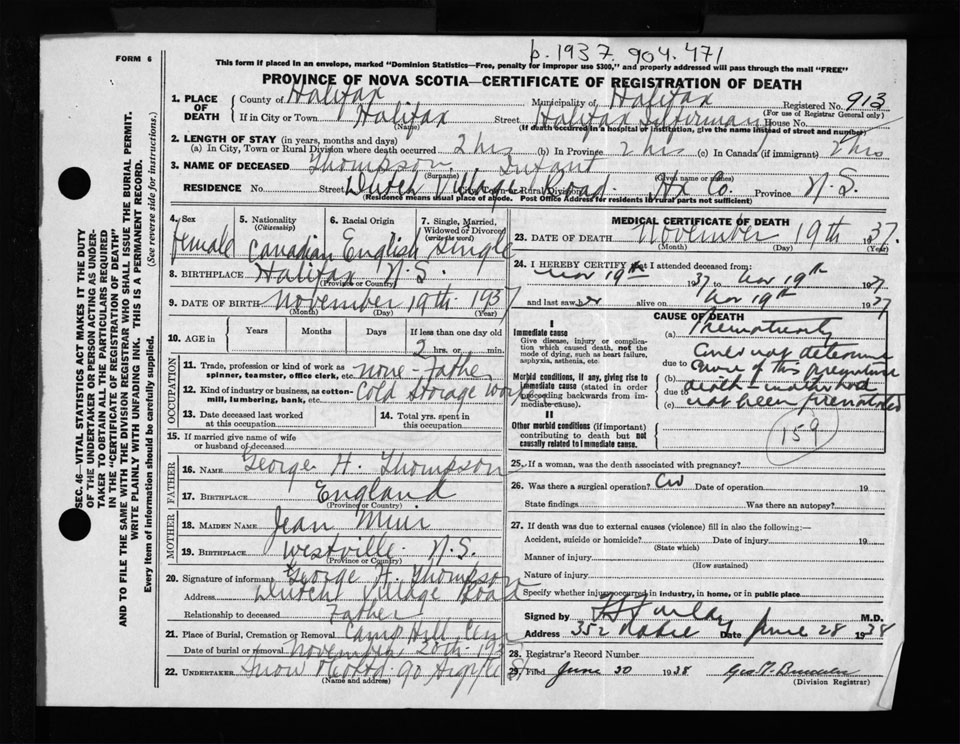 p. 1937. 904.471
FORM 6
This form if placed in an envelope, marked "Dominion Statistics—Free, penalty for improper use $300," and properly addressed will pass through the mail "FREE"
PROVINCE OF NOVA SCOTIA—CERTIFICATE OF REGISTRATION OF DEATH
1. PLACE OF DEATH
County of Halifax Municipality of Halifax Registered No. 913
(For use of Registrar General only)
If in City or Town Halifax Street Halifax House No.
(Name) (If death occurred in a hospital or institution, give the name instead of street and number)
2. LENGTH OF STAY (in years, months and days)
(a) In City, Town or Rural Division where death occurred 2 hrs (b) In Province 2 hrs (c) In Canada (if immigrant) 2 hrs
3. NAME OF DECEASED Thompson Infant
(Surname) (Given name or names)
RESIDENCE No. Street Dutch Village Road. Hx Co. Province N.S.
City, Town or Rural Division
(Residence means usual place of abode. Post Office Address for residents in rural parts not sufficient)
4. Sex female
5. Nationality (Citizenship) Canadian
6. Racial Origin English
7. Single, Married, Widowed or Divorced (write the word) Single
8. BIRTHPLACE Halifax N.S.
(Province or Country)
9. DATE OF BIRTH November 19th 1937
(Month) (Day) (Year)
10. AGE in Years Months Days If less than one day old
2 hrs. or min.
OCCUPATION
11. Trade, profession or kind of work as spinner, teamster, office clerk, etc. none - Father
12. Kind of industry or business, as cotton-mill, lumbering, bank, etc. Cold Storage work
13. Date deceased last worked at this occupation
14. Total yrs. spent in this occupation
15. If married give name of wife or husband of deceased
FATHER
16. NAME George H. Thompson
17. BIRTHPLACE England
(Province or Country)
MOTHER
18. MAIDEN NAME Jean Muir
19. BIRTHPLACE Westville N.S.
(Province or Country)
20. Signature of informant George H. Thompson
Address Dutch Village Road
Relationship to deceased Father
21. Place of Burial, Cremation or Removal Camp Hill Cem
Date of burial or removal November 20th 1937
22. UNDERTAKER Snow & Co Ltd 90 Argyle St
(Name and address)
MEDICAL CERTIFICATE OF DEATH
23. DATE OF DEATH November 19th 1937.
(Month) (Day) (Year)
24. I HEREBY CERTIFY that I attended deceased from:
Nov 19th 1937 to Nov 19th 1937
and last saw her alive on Nov 19th 1937
CAUSE OF DEATH
I
Immediate cause
Give disease, injury or complication which caused death, not the mode of dying, such as heart failure, asphyxia, asthenia, etc.
(a) Prematurity
due to
Morbid conditions, if any, giving rise to immediate cause (stated in order proceeding backwards from immediate cause).
(b)
due to
(c)
could not determine
cause of this premature
death
not been
II
Other morbid conditions (if important) contributing to death but not causally related to immediate cause.
159
25. If a woman, was the death associated with pregnancy?
26. Was there a surgical operation? Date of operation 19
State findings Was there an autopsy?
27. If death was due to external causes (violence) fill in also the following:—
Accident, suicide or homicide? Date of injury 19
(State which)
Manner of injury
(How sustained)
Nature of injury
Specify whether injury occurred in industry, in home, or in public place
Signed by M.D.
Address 352 Date June 28 1938
28. Registrar's Record Number
29. Filed June 30 1938 Geo.
(Division Registrar)
SEC. 46—VITAL STATISTICS ACT MAKES IT THE DUTY
OF THE UNDERTAKER OR PERSON ACTING AS UNDERTAKER TO OBTAIN ALL THE PARTICULARS REQUIRED
IN THE "CERTIFICATE OF REGISTRATION OF DEATH"
AND TO FILE THE SAME WITH THE DIVISION REGISTRAR WHO SHALL ISSUE THE BURIAL PERMIT.
WRITE PLAINLY WITH UNFADING INK. THIS IS A PERMANENT RECORD.
Every item of information should be carefully supplied. (See reverse side for instructions.)